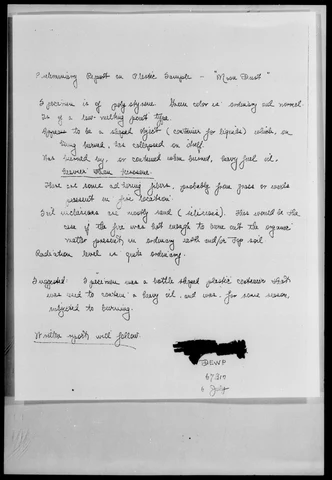 Preliminary Report on Plastic Sample - "Moon Dust"
Specimen is of polystyrene. Sheen color is ordinary and normal.
Is of a low-melting point type.
Appears to be a shaped object (container for liquids) which, on
being burned, has collapsed on itself.
Was burned by, or contained when burned, heavy fuel oil.
heavier than kerosene.
There are some adhering fibers, probably from grass or weeds
present in fire location.
Soil inclusions are mostly sand (siliceous). This would be the
case if the fire was hot enough to burn out the organic
matter present in ordinary earth and/or top soil
Radiation level is quite ordinary.
Suggested: Specimen was a bottle shaped plastic container which
was used to contain a heavy oil and was, for some reason,
subjected to burning.
Written reports will follow.
DEWF
67310
6 July